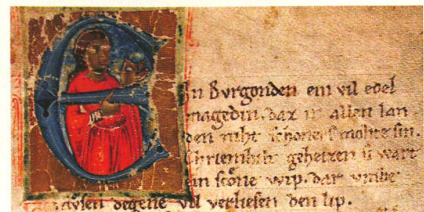 E
in Burgonden ein vil edel
magedin. daz in allen lan
den niht schoners mohte sin.
Chriemhilt geheizen si wart
ein scone wip. dar umbe
degene vil verliesen den lip.